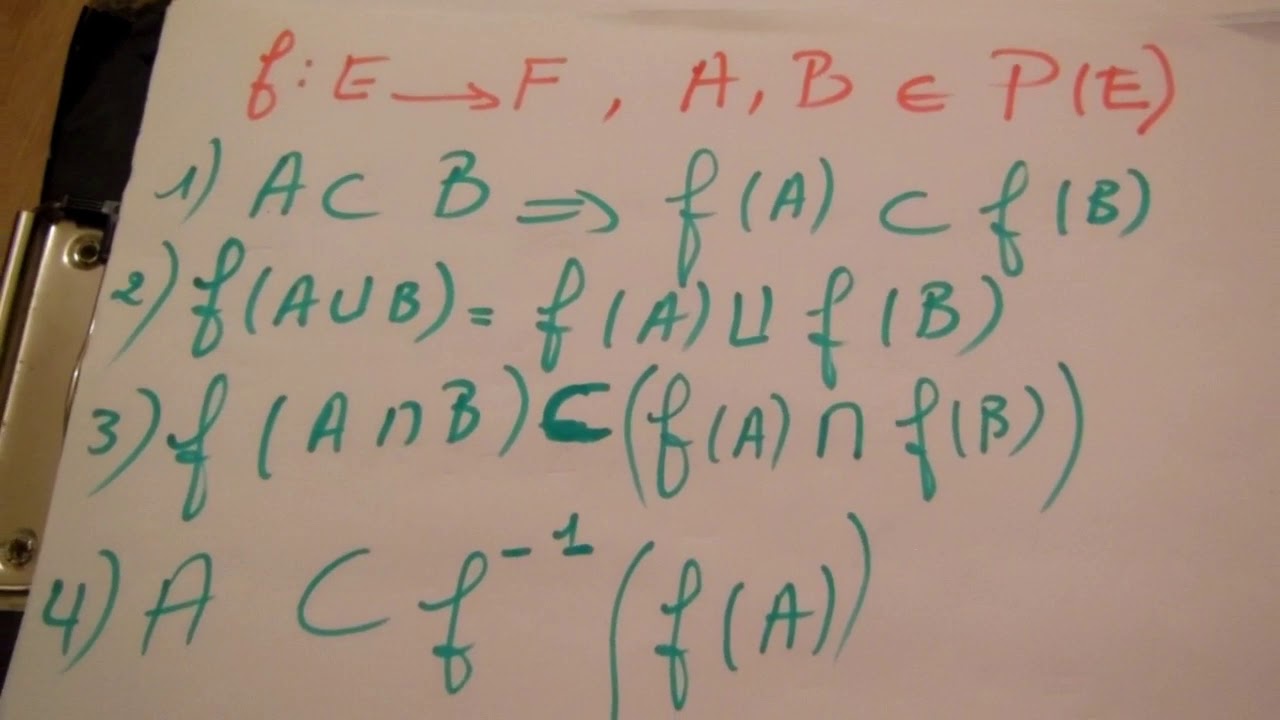 f: E → F , A, B ∈ P(E)
1) A ⊂ B ⇒ f(A) ⊂ f(B)
2) f(A∪B) = f(A) ∪ f(B)
3) f(A∩B) ⊂ (f(A) ∩ f(B))
4) A ⊂ f⁻¹(f(A))